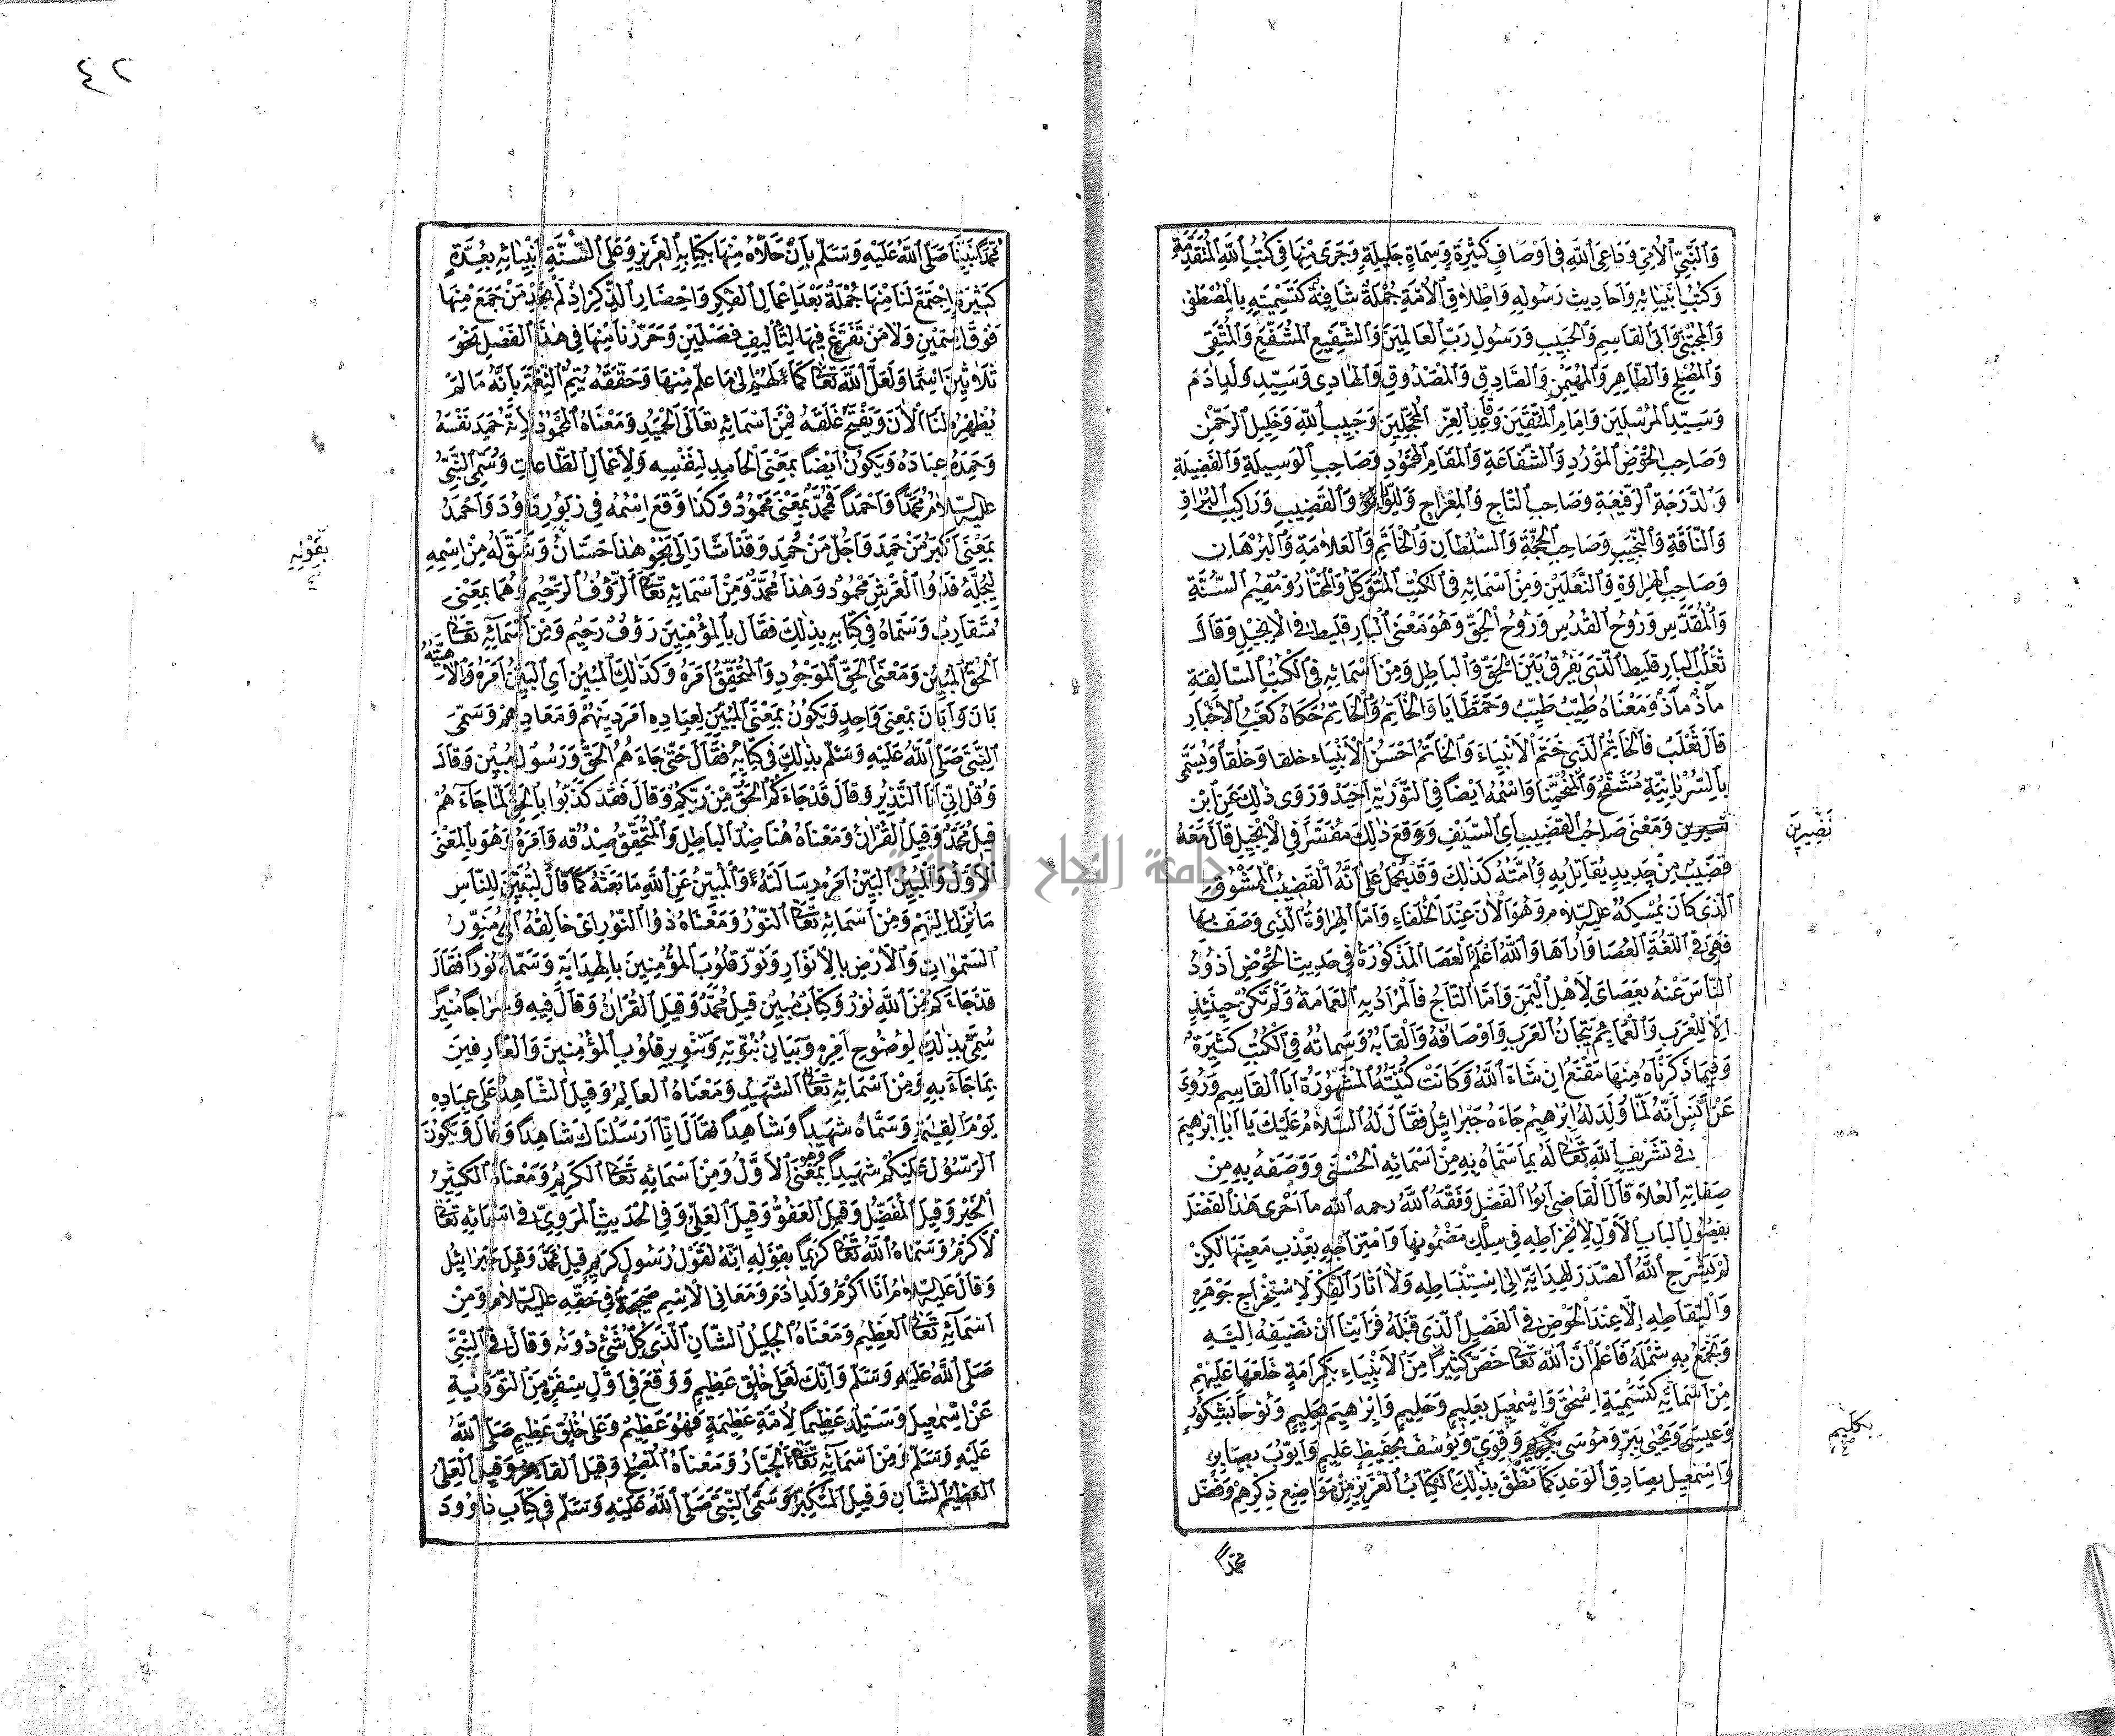 وَالنَّبِيِّ الْأُمِّيِّ وَدَاعِي اللّٰهِ فِي اَوْصَافٍ كَثِيرَةٍ وَسِمَاةٍ جَلِيلَةٍ وَجَرَى مِنْهَا فِي كُتُبِ اللّٰهِ الْمُتَقَدِّمَةِ
وَكُتُبِ اَنْبِيَائِهِ وَاَحَادِيثِ رَسُولِهِ وَاِطْلَاقِ الْاُمَّةِ جُمْلَةٌ شَافِيَةٌ كَتَسْمِيَتِهِ بِالْمُصْطَفٰى
وَالْمُجْتَبٰى وَاَبِي الْقَاسِمِ وَالْحَبِيبِ وَرَسُولِ رَبِّ الْعَالَمِينَ وَالشَّفِيعِ الْمُشَفَّعِ وَالْمُتَّقِى
وَالْمُصْلِحِ وَالطَّاهِرِ وَالْمُهَيْمِنِ وَالصَّادِقِ وَالْمَصْدُوقِ وَالْهَادِى وَسَيِّدِ وَلَدِ اٰدَمَ
وَسَيِّدِ الْمُرْسَلِينَ وَاِمَامِ الْمُتَّقِينَ وَقَائِدِ الْغُرِّ الْمُحَجَّلِينَ وَحَبِيبِ اللّٰهِ وَخَلِيلِ الرَّحْمٰنِ
وَصَاحِبِ الْحَوْضِ الْمَوْرُدِ وَالشَّفَاعَةِ وَالْمَقَامِ الْمَحْمُودِ وَصَاحِبِ الْوَسِيلَةِ وَالْفَضِيلَةِ
وَالدَّرَجَةِ الرَّفِيعَةِ وَصَاحِبِ التَّاجِ وَالْمِعْرَاجِ وَاللِّوَاءِ وَالْقَضِيبِ وَرَاكِبِ الْبُرَاقِ
وَالنَّاقَةِ وَالنَّجِيبِ وَصَاحِبِ الْحُجَّةِ وَالسُّلْطَانِ وَالْخَاتَمِ وَالْعَلَامَةِ وَالْبُرْهَانِ
وَصَاحِبِ الْهِرَاوَةِ وَالنَّعْلَيْنِ وَمِنْ اَسْمَائِهِ فِى الْكُتُبِ الْمُتَوَكِّلُ وَالْمُخْتَارُ وَمُقِيمُ السُّنَّةِ
وَالْمُقَدَّسِ وَرُوْحُ الْقُدُسِ وَرُوْحُ الْحَقِّ وَهُوَ مَعْنَى الْبَارِقْلِيطِ فِى الْاِنْجِيلِ وَقَالَ
ثَعْلَبُ الْبَارِقْلِيطُ الَّذِى يَفْرُقُ بَيْنَ الْحَقِّ وَالْبَاطِلِ وَمِنْ اَسْمَائِهِ فِى الْكُتُبِ السَّالِفَةِ
مَاذْ مَاذْ وَمَعْنَاهُ طَيِّبٌ طَيِّبٌ وَحَمْطَايَا وَالْخَاتِمُ وَالْحَاتِمُ حَكَاهُ كَعْبُ الْاَحْبَارِ
قَالَ ثَعْلَبُ فَالْخَاتِمُ الَّذِى خَتَمَ الْاَنْبِيَاءَ وَالْحَاتِمُ اَحْسَنُ الْاَنْبِيَاءِ خلقا وَخُلُقًا وَيُسَمّٰى
بِالسُّرْيَانِيَّةِ مُشَفَّحْ وَالْمُنْحَمِنَّا وَاسْمُهُ اَيْضًا فِى التَّوْرٰيةِ اُحِيدْ وَرَوَى ذٰلِكَ عَنْ ابْنِ
سيرين وَمَعْنَى صَاحِبُ الْقَضِيبِ اَىِ السَّيْفِ وَوَقَعَ ذٰلِكَ مُفَسَّرًا فِى الْاِنْجِيلِ قَالَ مَعَهُ
قَضِيبٌ مِنْ حَدِيدٍ يُقَاتِلُ بِهِ وَاُمَّتُهُ كَذٰلِكَ وَقَدْ يُحْمَلُ عَلٰى اَنَّهُ الْقَضِيبُ الْمَمْشُوقُ
الَّذِى كَانَ يُمْسِكُهُ عليه السلام وَهُوَ الْاٰنَ عِنْدَ الْخُلَفَاءِ وَاَمَّا الْهِرَاوَةُ الَّذِى وَصَفَ بِهَا
فَهِىَ فِى اللُّغَةِ الْعَصَا وَاُرَاهَا وَاللّٰهُ اَعْلَمُ الْعَصَا الْمَذْكُورَةُ فِى حَدِيثِ الْحَوْضِ اَذُودُ
النَّاسَ عَنْهُ بِعَصَاىَ لِاَهْلِ الْيَمَنِ وَاَمَّا التَّاجُ فَالْمُرَادُ بِهِ الْعَمَامَةُ وَلَمْ تَكُنْ حِينَئِذٍ
اِلَّا لِلْعَرَبِ وَالْعَمَائِمُ تِيجَانُ الْعَرَبِ وَاَوْصَافُهُ وَاَلْقَابُهُ وَسِمَاتُهُ فِى الْكُتُبِ كَثِيرَةٌ
وَفِيمَا ذَكَرْنَاهُ مِنْهَا مَقْنَعٌ اِنْ شَاءَ اللّٰهُ وَكَانَتْ كُنْيَتُهُ الْمَشْهُورَةُ اَبَا الْقَاسِمِ وَرُوِىَ
عَنْ اَنَسٍ اَنَّهُ لَمَّا وُلِدَ لَهُ اِبْرٰهِيمُ جَاءَهُ جَبْرَائِيْلُ فَقَالَ لَهُ السَّلَامُ عَلَيْكَ يَا اَبَا اِبْرٰهِيمَ
فِى تَشْرِيفِ اللّٰهِ تَعَالٰى لَهُ بِمَا سَمَّاهُ بِهِ مِنْ اَسْمَائِهِ الْحُسْنٰى وَوَصَفَهُ بِهِ مِنْ
صِفَاتِهِ الْعُلَا قَالَ الْقَاضِى اَبُو الْفَضْلِ وَفَّقَهُ اللّٰهُ رحمه الله مَا اَحْرٰى هٰذَا الْفَصْلَ
بِفُصُولِ الْبَابِ الْاَوَّلِ لِانْخِرَاطِهِ فِى سِلْكِ مَضْمُونِهَا وَامْتِزَاجِهِ بِعَذْبِ مَعِينِهَا لٰكِنْ
لَمْ يَشْرَحِ اللّٰهُ الصَّدْرَ لِلْهِدَايَةِ اِلَى اسْتِنْبَاطِهِ وَلَا اَثَارَ الْفِكْرَ لِاسْتِخْرَاجِ جَوْهَرِهِ
وَالْتِقَاطِهِ اِلَّا عِنْدَ الْخَوْضِ فِى الْفَصْلِ الَّذِى قَبْلَهُ فَرَاَيْنَا اَنْ نُضِيفَهُ اِلَيْهِ
وَنَجْمَعَ بِهِ شَمْلَهُ فَاعْلَمْ اَنَّ اللّٰهَ تَعَالٰى خَصَّ كَثِيرًا مِنَ الْاَنْبِيَاءِ بِكَرَامَةٍ خَلَعَهَا عَلَيْهِمْ
مِنْ اَسْمَائِهِ كَتَسْمِيَةِ اِسْحٰقَ وَاِسْمٰعِيلَ بِعَلِيمٍ وَحَلِيمٍ وَاِبْرٰهِيمَ بِحَلِيمٍ وَنُوحًا بِشَكُورٍ
وَعِيسٰى وَيَحْيٰى بِبَرٍّ وَمُوسٰى بِكَرِيمٍ وَقَوِىٍّ وَيُوسُفَ بِحَفِيظٍ عَلِيمٍ وَاَيُّوبَ بِصَابِرٍ
وَاِسْمٰعِيلَ بِصَادِقِ الْوَعْدِ كَمَا نَطَقَ بِذٰلِكَ الْكِتَابُ الْعَزِيزُ مِنْ مَوَاضِعِ ذِكْرِهِمْ وَفَضَّلَ
محمدًا
بِكَلِيمٍ
٤٢
مُحَمَّدًا نَبِيَّنَا صَلَّى اللّٰهُ عَلَيْهِ وَسَلَّمَ بِاَنْ حَلَّاهُ مِنْهَا بِكِتَابِهِ الْعَزِيزِ وَعَلٰى اَلْسِنَةِ اَنْبِيَائِهِ بِعِدَّةٍ
كَثِيرَةٍ اِجْتَمَعَ لَنَا مِنْهَا جُمْلَةٌ بَعْدَ اِعْمَالِ الْفِكْرِ وَاِحْضَارِ الذِّكْرِ اِذْ لَمْ نَجِدْ مَنْ جَمَعَ مِنْهَا
فَوْقَ اسْمَيْنِ وَلَا مَنْ تَفَرَّغَ فِيهَا لِتَأْلِيفِ فَصْلَيْنِ وَحَرَّرْنَا مِنْهَا فِى هٰذَا الْفَصْلِ نَحْوَ
ثَلَاثِينَ اِسْمًا وَلَعَلَّ اللّٰهَ تَعَالٰى كَمَا اَلْهَمَ اِلٰى مَا عَلَّمَ مِنْهَا وَحَقَّقَهُ يُتِمُّ النِّعْمَةَ بِاِبَانَةِ مَا لَمْ
يُظْهِرْهُ لَنَا الْاٰنَ وَيَفْتَحُ غَلَقَهُ فَمِنْ اَسْمَائِهِ تَعَالَى الْحَمِيدُ وَمَعْنَاهُ الْمَحْمُودُ لِاَنَّهُ حَمِدَ نَفْسَهُ
وَحَمِدَهُ عِبَادُهُ وَيَكُونُ اَيْضًا بِمَعْنَى الْحَامِدِ لِنَفْسِهِ وَلِاَعْمَالِ الطَّاعَاتِ وَسُمِّىَ النَّبِىُّ
عليه السلام مُحَمَّدًا وَاَحْمَدًا فَمُحَمَّدٌ بِمَعْنٰى مَحْمُودٍ وَكَذَا وَقَعَ اِسْمُهُ فِى زَبُورِ دَاوُدَ وَاَحْمَدُ
بِمَعْنٰى اَكْبَرُ مَنْ حَمِدَ وَاَجَلُّ مَنْ حُمِدَ وَقَدْ اَشَارَ اِلٰى نَحْوِ هٰذَا حَسَّانٌ وَشَقَّ لَهُ مِنْ اِسْمِهِ
لِيُجِلَّهُ فَذُو الْعَرْشِ مَحْمُودٌ وَهٰذَا مُحَمَّدٌ وَمِنْ اَسْمَائِهِ تَعَالٰى الرَّؤُفُ الرَّحِيمُ وَهُمَا بِمَعْنًى
مُتَقَارِبٌ وَسَمَّاهُ فِى كِتَابِهِ بِذٰلِكَ فَقَالَ بِالْمُؤْمِنِينَ رَؤُفٌ رَحِيمٌ وَمِنْ اَسْمَائِهِ تَعَالٰى
اَلْحَقُّ الْمُبِينُ وَمَعْنَى الْحَقِّ الْمَوْجُودُ وَالْمُتَحَقِّقُ اَمْرُهُ وَكَذٰلِكَ الْمُبِينُ اَىِ الْبَيِّنُ اَمْرُهُ وَاِلٰهِيَّتُهُ
بَانَ وَاَبَانَ بِمَعْنًى وَاحِدٍ وَيَكُونُ بِمَعْنَى الْمُبَيِّنِ لِعِبَادِهِ اَمْرَ دِينِهِمْ وَمَعَادِهِمْ وَسَمّٰى
النَّبِىَّ صَلَّى اللّٰهُ عَلَيْهِ وَسَلَّمَ بِذٰلِكَ فِى كِتَابِهِ فَقَالَ حَتّٰى جَاءَهُمُ الْحَقُّ وَرَسُولٌ مُبِينٌ وَقَالَ
وَقُلْ اِنِّى اَنَا النَّذِيرُ وَقَالَ قَدْ جَاءَكُمُ الْحَقُّ مِنْ رَبِّكُمْ وَقَالَ فَقَدْ كَذَّبُوا بِالْحَقِّ لَمَّا جَاءَهُمْ
قِيلَ مُحَمَّدٌ وَقِيلَ الْقُرْاٰنُ وَمَعْنَاهُ هُنَا ضِدُّ الْبَاطِلِ وَالْمُتَحَقِّقُ صِدْقُهُ وَاَمْرُهُ وَهُوَ بِالْمَعْنَى
الْاَوَّلِ وَالْمُبِينُ الْبَيِّنُ اَمْرُهُ وَرِسَالَتُهُ وَالْمُبَيِّنُ عَنِ اللّٰهِ مَا بَعَثَهُ كَمَا قَالَ لِتُبَيِّنَ لِلنَّاسِ
مَا نُزِّلَ اِلَيْهِمْ وَمِنْ اَسْمَائِهِ تَعَالٰى النُّوْرُ وَمَعْنَاهُ ذُوا النُّوْرِ اَىْ خَالِقُهُ اَوْ مُنَوِّرُ
السَّمٰوَاتِ وَالْاَرْضِ بِالْاَنْوَارِ وَنُوِّرَ قُلُوبَ الْمُؤْمِنِينَ بِالْهِدَايَةِ وَسَمَّاهُ نُورًا فَقَالَ
قَدْ جَاءَكُمْ مِنَ اللّٰهِ نُورٌ وَكِتَابٌ مُبِينٌ قِيلَ مُحَمَّدٌ وَقِيلَ الْقُرْاٰنُ وَقَالَ فِيهِ وَسِرَاجًا مُنِيرًا
سُمِّىَ بِذٰلِكَ لِوُضُوحِ اَمْرِهِ وَبَيَانِ نُبُوَّتِهِ وَتَنْوِيرِ قُلُوبِ الْمُؤْمِنِينَ وَالْعَارِفِينَ
بِمَا جَاءَ بِهِ وَمِنْ اَسْمَائِهِ تَعَالٰى الشَّهِيدُ وَمَعْنَاهُ الْعَالِمُ وَقِيلَ الشَّاهِدُ عَلٰى عِبَادِهِ
يَوْمَ الْقِيٰمَةِ وَسَمَّاهُ شَهِيدًا وَشَاهِدًا فَقَالَ اِنَّا اَرْسَلْنَاكَ شَاهِدًا وَقَالَ وَيَكُونَ
الرَّسُوْلُ عَلَيْكُمْ شَهِيدًا وَهُوَ بِمَعْنَى الْاَوَّلُ وَمِنْ اَسْمَائِهِ تَعَالٰى الْكَرِيمُ وَمَعْنَاهُ الْكَثِيرُ
الْخَيْرِ وَقِيلَ الْمُفَضِّلُ وَقِيلَ الْعَفُوُّ وَقِيلَ الْعَلِىُّ وَفِى الْحَدِيثِ الْمَرْوِىِّ فِى اَسْمَائِهِ تَعَالٰى
الْاَكْرَمُ وَسَمَّاهُ اللّٰهُ تَعَالٰى كَرِيمًا بِقَوْلِهِ اِنَّهُ لَقَوْلُ رَسُولٍ كَرِيمٍ قِيلَ مُحَمَّدٌ وَقِيلَ جَبْرَائِيْلُ
وَقَالَ عليه السلام اَنَا اَكْرَمُ وَلَدِ اٰدَمَ وَمَعَانِى الْاِسْمِ صَحِيحَةٌ فِى حَقِّهِ عليه السلام وَمِنْ
اَسْمَائِهِ تَعَالٰى الْعَظِيمُ وَمَعْنَاهُ الْجَلِيلُ الشَّانِ الَّذِى كُلُّ شَىْءٍ دُونَهُ وَقَالَ فِى النَّبِىِّ
صَلَّى اللّٰهُ عَلَيْهِ وَسَلَّمَ وَاِنَّكَ لَعَلٰى خُلُقٍ عَظِيمٍ وَوَقَعَ فِى اَوَّلِ سِفْرٍ مِنَ التَّوْرٰيةِ
عَنْ اِسْمٰعِيلَ وَسَتَلِدُ عَظِيمًا لِاُمَّةٍ عَظِيمَةٍ فَهُوَ عَظِيمٌ وَعَلٰى خُلُقٍ عَظِيمٍ صَلَّى اللّٰهُ
عَلَيْهِ وَسَلَّمَ وَمِنْ اَسْمَائِهِ تَعَالٰى الْجَبَّارُ وَمَعْنَاهُ الْمُصْلِحُ وَقِيلَ الْقَاهِرُ وَقِيلَ الْعَلِىُّ
الْعَظِيمُ الشَّانِ وَقِيلَ الْمُتَكَبِّرُ وَسَمَّى النَّبِىَّ صَلَّى اللّٰهُ عَلَيْهِ وَسَلَّمَ فِى كِتَابِ دَاوُودَ
بِقَوْلِهِ
جامعة النجاح الوطنية